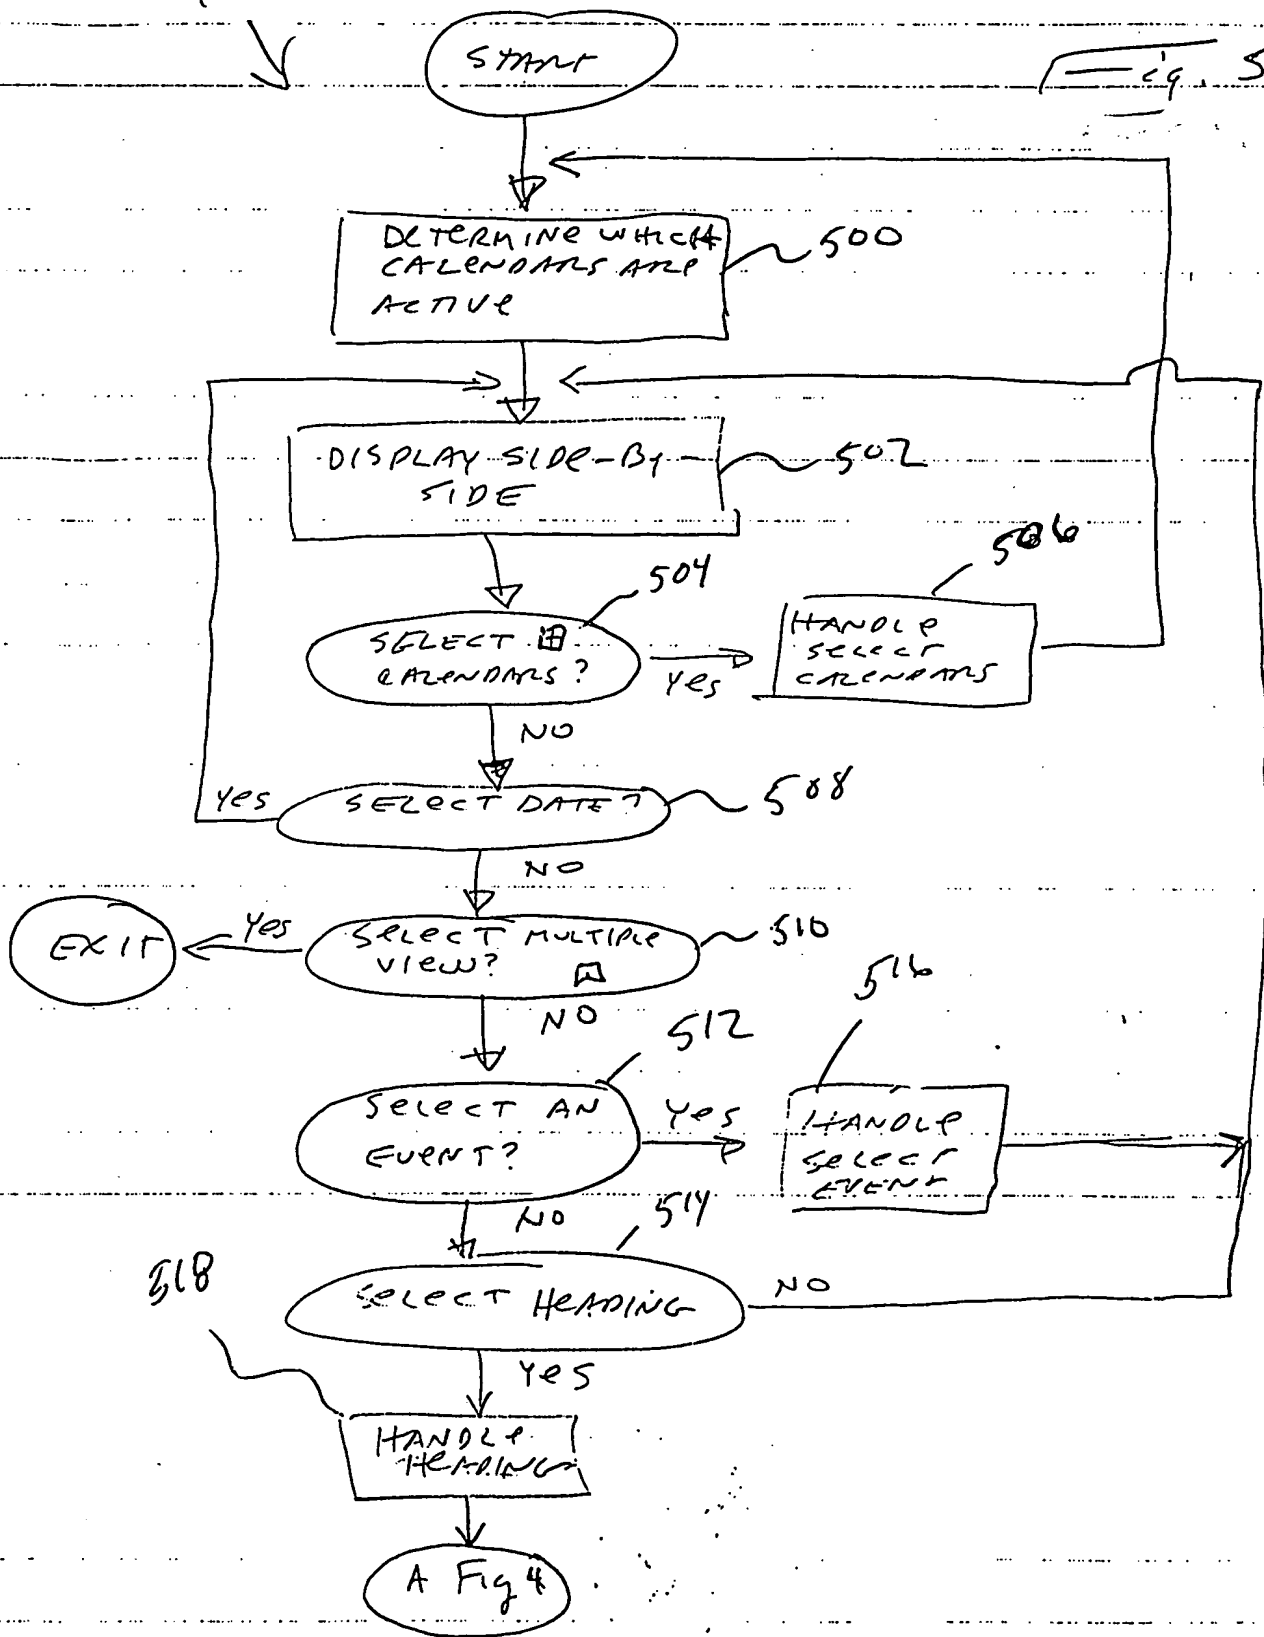 START
Fig. 5
DETERMINE WHICH
CALENDARS ARE
ACTIVE
500
DISPLAY SIDE-BY-
SIDE
502
504
SELECT
CALENDARS?
Yes
506
HANDLE
SELECT
CALENDARS
NO
Yes
SELECT DATE?
508
NO
EXIT
Yes
SELECT MULTIPLE
VIEW?
510
NO
512
SELECT AN
EVENT?
Yes
516
HANDLE
SELECT
EVENT
NO
514
518
SELECT HEADING
NO
Yes
HANDLE
HEADING
A Fig 4